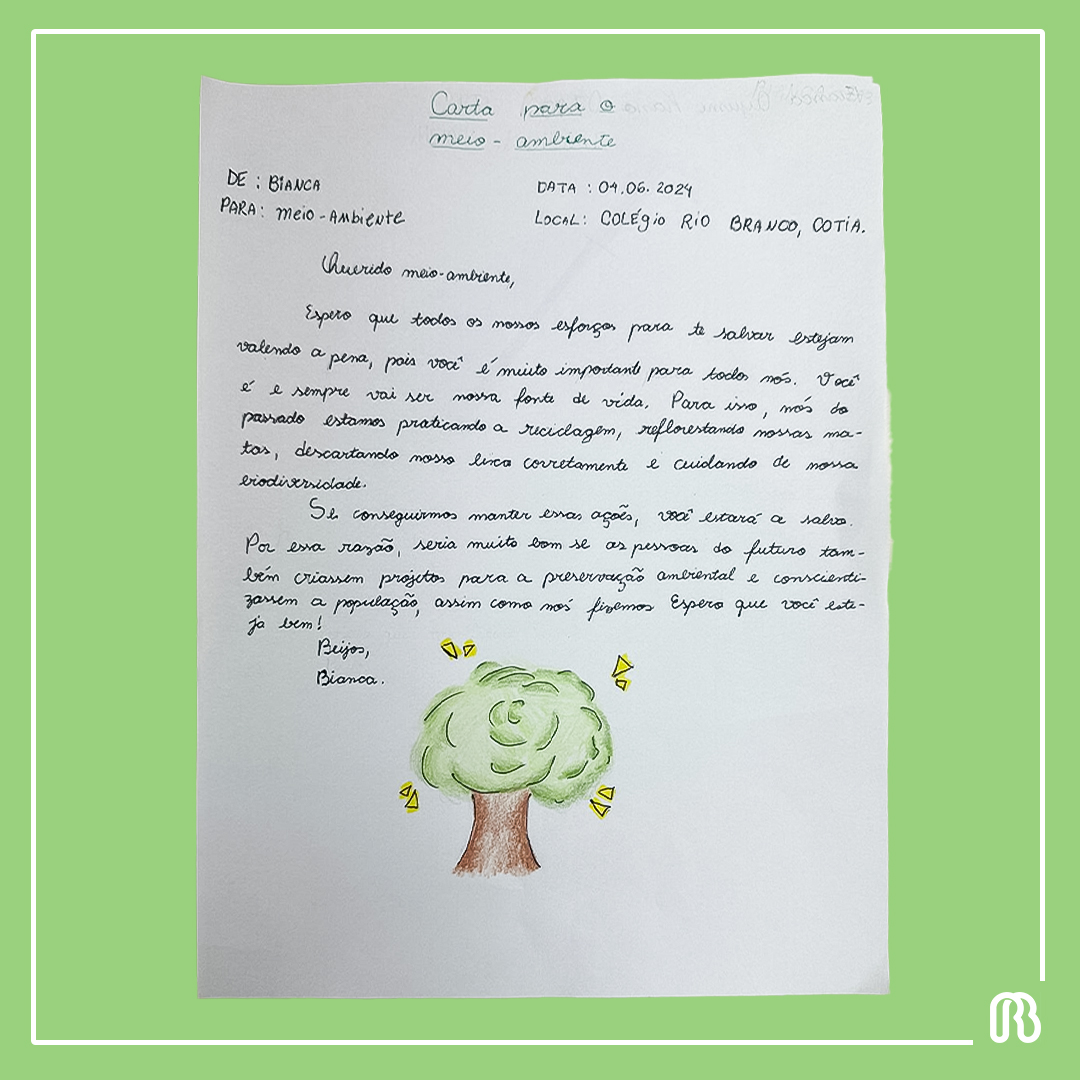 Carta para o
meio-ambiente
DE: BIANCA
DATA: 04.06.2024
PARA: MEIO-AMBIENTE
LOCAL: COLÉGIO RIO BRANCO, COTIA.
Querido meio-ambiente,
Espero que todos os nossos esforços para te salvar estejam
valendo a pena, pois você é muito importante para todos nós. Você
é e sempre vai ser nossa fonte de vida. Para isso, nós do
passado estamos praticando a reciclagem, reflorestando nossas ma-
tas, descartando nosso lixo corretamente e cuidando de nossa
biodiversidade.
Se conseguirmos manter essas ações, você estará a salvo.
Por essa razão, seria muito bom se as pessoas do futuro tam-
bém criassem projetos para a preservação ambiental e conscienti-
zassem a população, assim como nós fizemos Espero que você este-
ja bem!
Beijos,
Bianca.